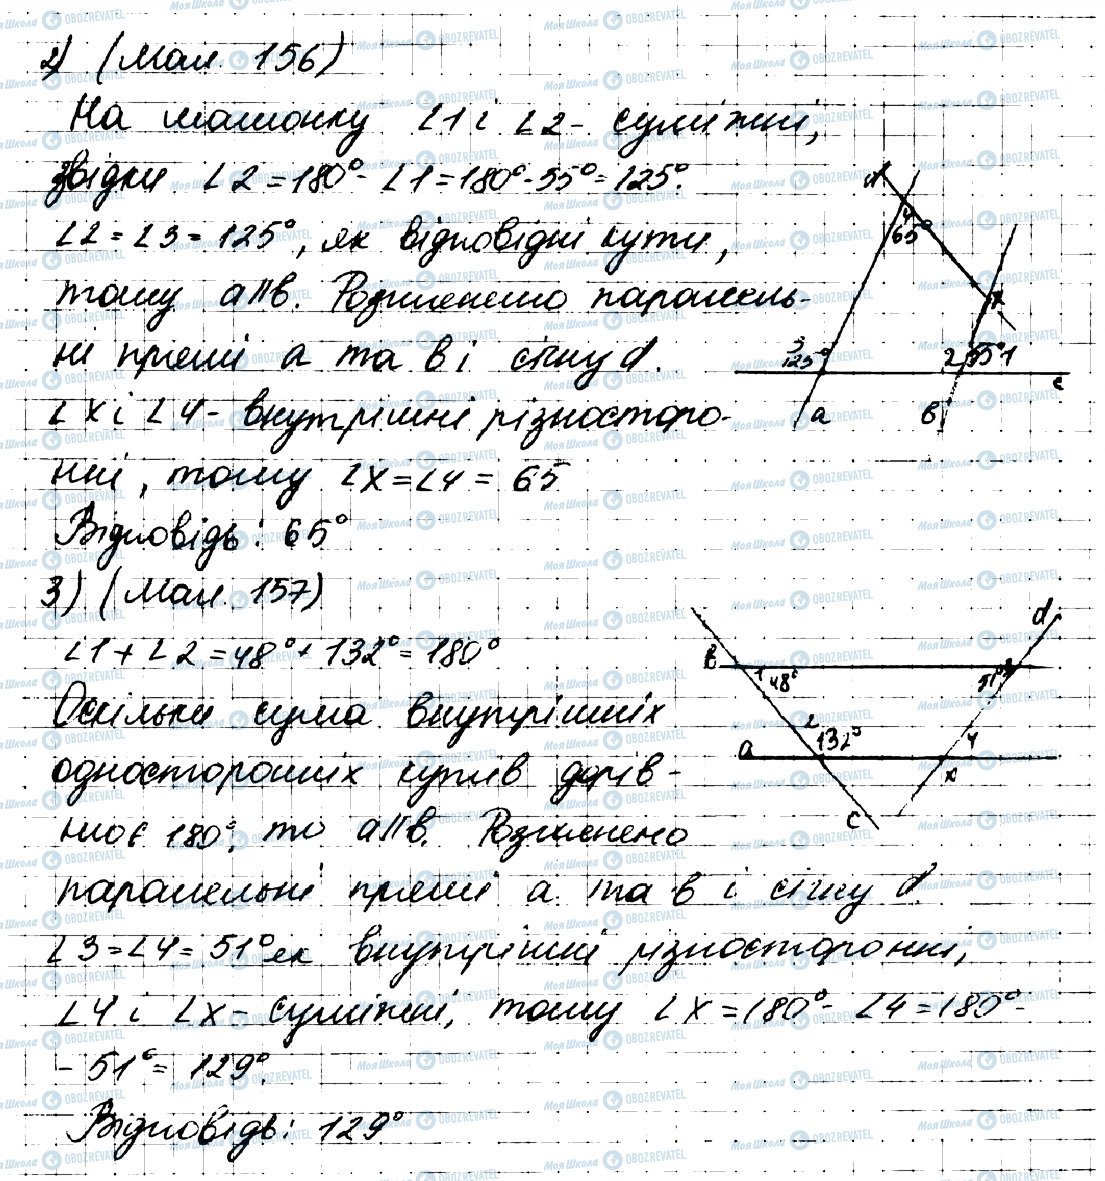 2) (Мал. 156)
На малюнку ∠1 і ∠2 - суміжні,
звідки ∠2 = 180° - ∠1 = 180° - 55° = 125°.
∠2 = ∠3 = 125°, як відповідні кути,
тому a||в. Розглянемо паралель-
ні прямі а та в і січну d.
∠x і ∠4 - внутрішні різносторо-
нні, тому ∠x = ∠4 = 65
Відповідь: 65°
d
4
65°
x
3
125°
2
55°
1
c
a
в
3) (Мал. 157)
∠1 + ∠2 = 48° + 132° = 180°
Оскільки сума внутрішніх
односторонніх кутів дорів-
нює 180°, то a||в. Розглянемо
паралельні прямі а та в і січну d.
∠3 = ∠4 = 51° як внутрішні різносторонні,
∠4 і ∠x - суміжні, тому ∠x = 180° - ∠4 = 180° -
- 51° = 129°.
Відповідь: 129°
d
в
1
48°
51°
3
2
132°
4
a
x
c
МояШкола OBOZREVATEL